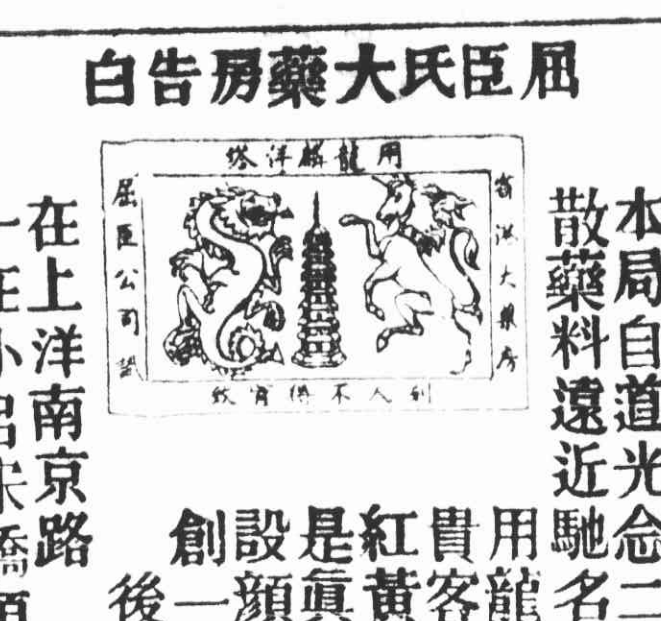 屈臣氏大藥房告白
用龍麟洋塔
香港大藥房
屈臣公司
別人不得冒效
本局自道光念二
散藥料遠近馳名
用龍
貴客
紅黃
是眞
設顏
創一
後
在上洋南京路